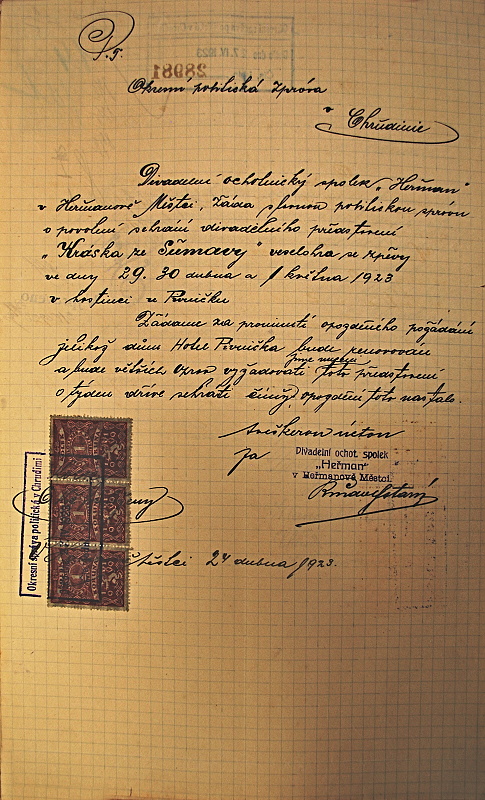 P. T.
28981
Okresní politická správa
v
Chrudimi
Divadelní ochotnický spolek "Heřman"
v Heřmanově Městci, žádá slavnou politickou správu
o povolení sehrání divadelního představení
"Kráska ze Šumavy" veselohra se zpěvy
ve dny 29. 30 dubna a 1 května 1923
v hostinci u Pivničků
Žádáme za prominutí opozděného požádání
jelikož dům Hotel Pivnička bude renovován
a bude větších oprav vyžadovati jsme nuceni toto představení
o týden dříve sehráti čímž opozdění toto nastalo.
Veškerou úctou
za
Divadelní ochot. spolek
„Heřman"
v Heřmanově Městci.
24 dubna 1923.
Okresní správa politická v Chrudimi